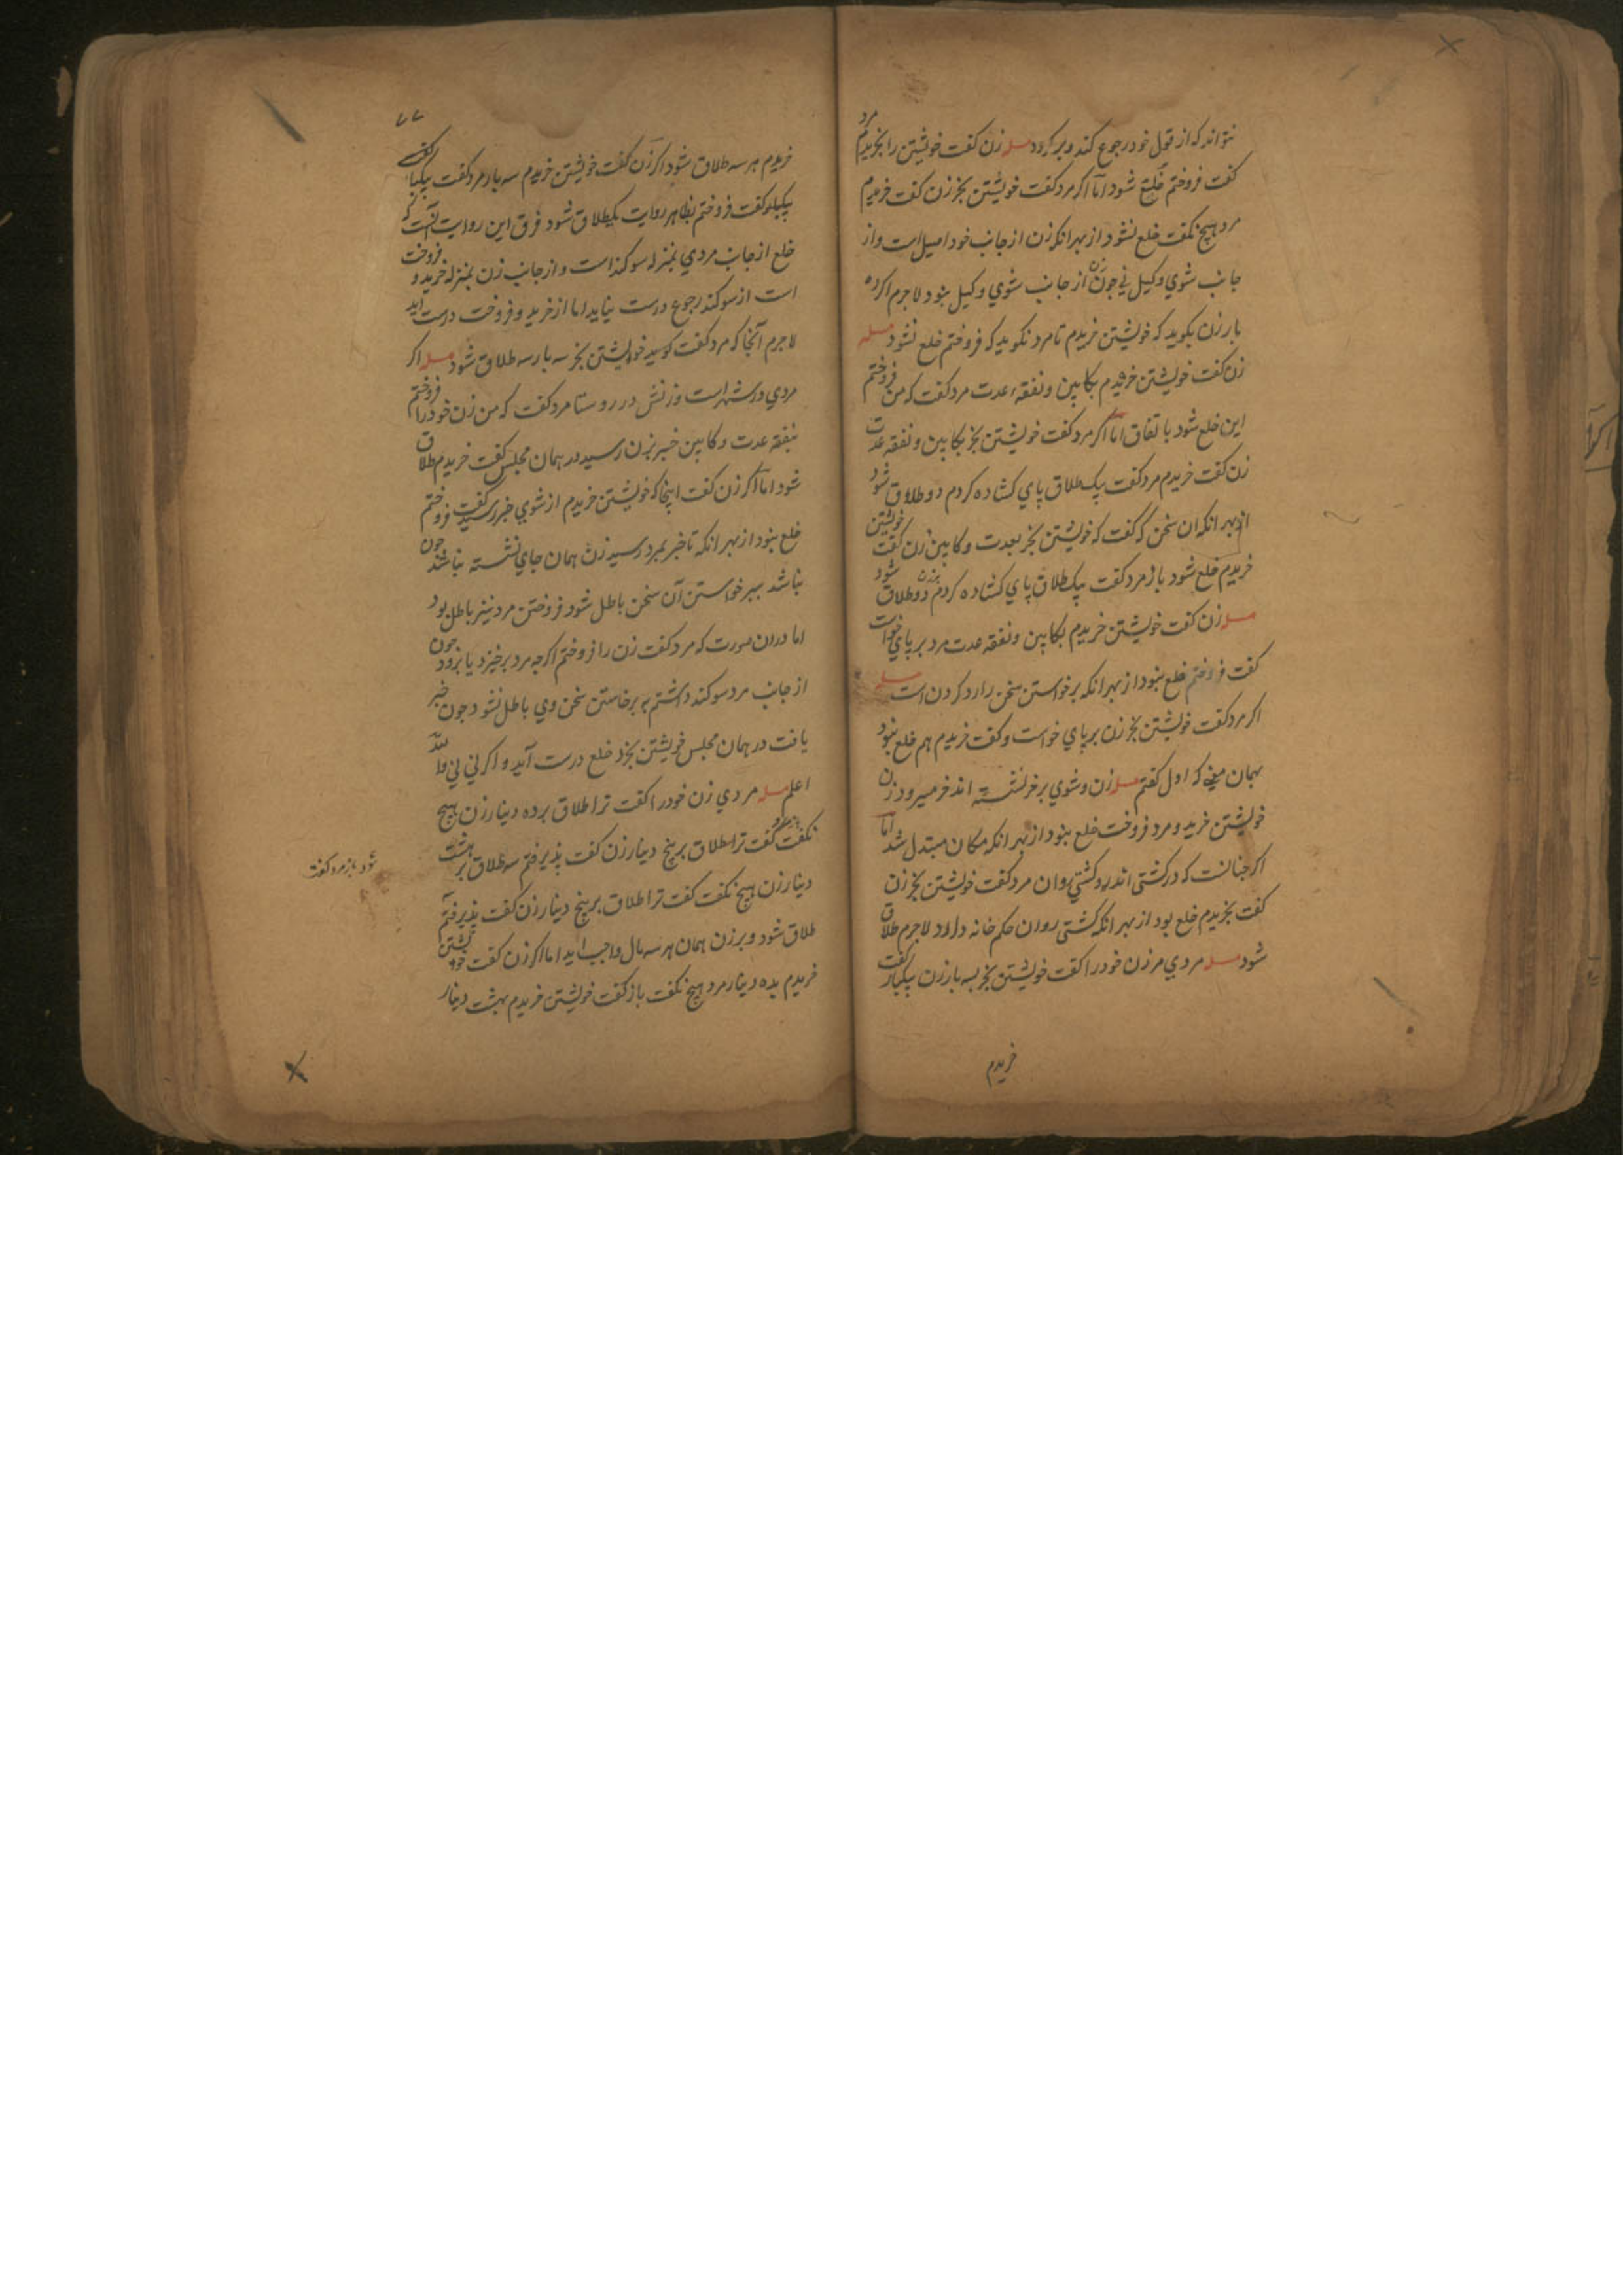 نتواند که از قول خود رجوع کند و برگردد مسله زن کفت خویشتن را بخریدم مرد
کفت فروختم خلع شود اما اکر مرد کفت خویشتن بخر زن کفت خریدم
مرد هیچ نکفت خلع نشود از بهر انکه زن از جانب خود اصیل است و از
جانب شوي وکیل ني جون زن از جانب شوي وکیل نبود لاجرم اکر ده
بار زن بکوید که خویشتن خریدم تا مرد نکوید که فروختم خلع نشود مسله
زن کفت خویشتن خریدم بکابین و نفقهٔ عدت مرد کفت که من فروختم
این خلع شود باتفاق اما اکر مرد کفت خویشتن بخر بکابین و نفقه عدت
زن کفت خریدم مرد کفت یک طلاق پاي کشاده کردم دو طلاق شود
از بهر انکه ان سخن که کفت که خویشتن بخر بعدت و کابین زن کفت خویشتن
خریدم خلع شود باز مرد کفت یک طلاق پاي کشاده کردم دو طلاق شود
مسله زن کفت خویشتن خریدم بکابین و نفقه عدت مرد بر پاي خواست
کفت فروختم خلع نبود از بهر انکه برخواستن سخن را رد کردن است مسله
اکر مرد کفت خویشتن بخر زن بر پاي خواست و کفت خریدم هم خلع نبود
بهمان معنی که اول کفتم مسله زن و شوي بر خر نشسته اند خر میرود زن
خویشتن خرید و مرد فروخت خلع نبود از بهر انکه مکان مبتدل شد اما
اکر جنانست که در کشتی اندر و کشتی روان مرد کفت خویشتن بخر زن
کفت بخریدم خلع بود از بهر انکه کشتی روان حکم خانه دارد لاجرم طلاق
شود مسله مردي مر زن خود را کفت خویشتن بخر بسه بار زن یکبار کفت
خریدم
۷۷
خریدم هر سه طلاق شود اکر زن کفت خویشتن خریدم سه بار مرد کفت یکبار
یکبار کفت فروختم بظاهر روایت یکطلاق شود فرق این روایت آنست که
خلع از جانب مردي بمنزله سوکند است و از جانب زن بمنزله خرید و فروخت
است از سوکند رجوع درست نیاید اما از خرید و فروخت درست اید
لاجرم آنجا که مرد کفت خویشتن بخر سه بار سه طلاق شود مسله اکر
مردي در شهر است و زنش در روستا مرد کفت که من زن خود را فروختم
بنفقه عدت و کابین خبر بزن رسید در همان مجلس کفت خریدم طلاق
شود اما اکر زن کفت اینجا که خویشتن خریدم از شوي خبر رسید کفت فروختم
خلع نبود از بهر انکه تا خبر بمرد رسید زن همان جاي نشسته نباشد جون
نباشد ببرخواستن آن سخن باطل شود فروختن مرد نیز باطل بود
اما دران صورت که مرد کفت زن را فروختم اکرجه مرد برخیزد یا برود جون
از جانب مرد سوکند داشتم به برخاستن سخن وي باطل نشود جون خبر
یافت در همان مجلس خویشتن بخرد خلع درست آید و اکر ني ني والله
اعلم مسله مردي زن خود را کفت ترا طلاق بر ده دینار زن هیچ
نکفت کفت ترا طلاق بر پنج دینار زن کفت پذیرفتم سه طلاق بر هشت
دینار زن هیچ نکفت کفت ترا طلاق بر پنج دینار زن کفت پذیرفتم
طلاق شود و بر زن همان هر سه مال واجب اید اما اکر زن کفت خویشتن
خریدم بده دینار مرد هیچ نکفت باز کفت خویشتن خریدم بهشت دینار